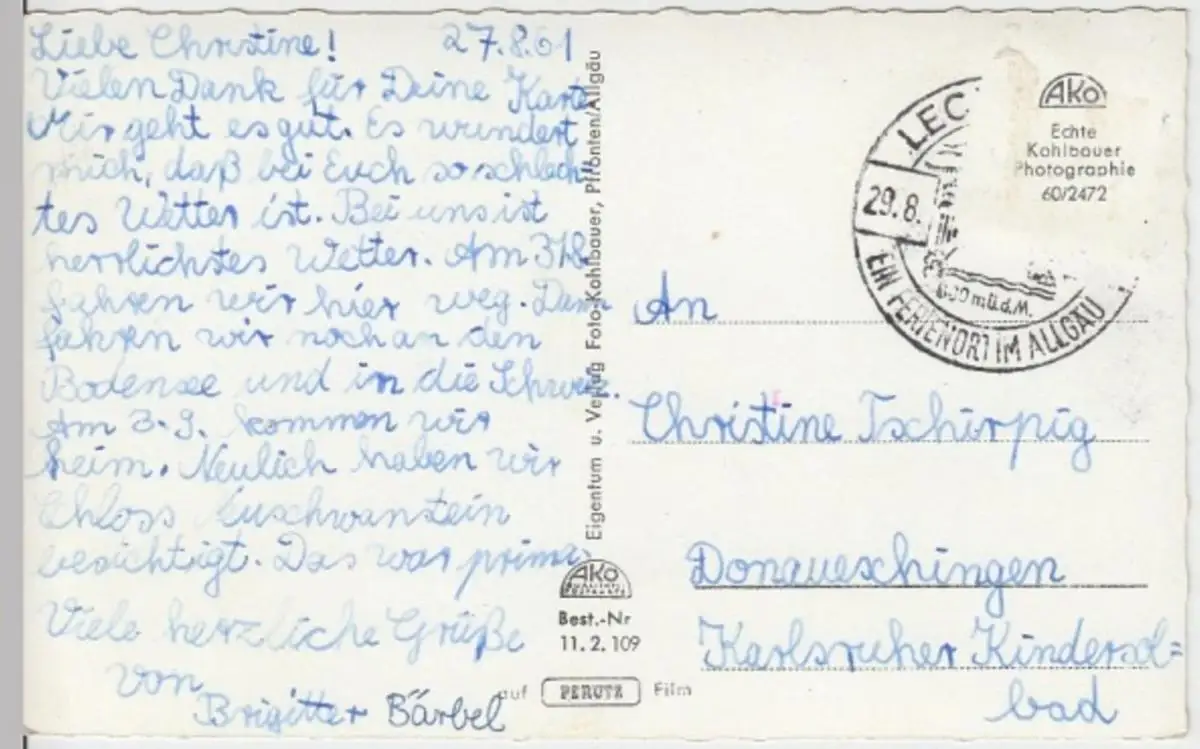 Liebe Christine! 27.8.61
Vielen Dank für Deine Karte
Mir geht es gut. Es wundert
mich, daß bei Euch so schlech
tes Wetter ist. Bei uns ist
herrlichstes Wetter. Am 31.8.
fahren wir hier weg. Dann
fahren wir noch an den
Bodensee und in die Schweiz.
Am 3.9. kommen wir
heim. Neulich haben wir
Schloss Neuschwanstein
besichtigt. Das war prima.
Viele herzliche Grüße
von
Brigitte Bärbel
Eigentum u. Verlag Foto-Kohlbauer, Pfronten/Allgäu
AKO
Best.-Nr
11.2.109
auf PERUTZ Film
LEC
29.8.
800 m ü.d.M.
EIN FERIENORT IM ALLGÄU
AKO
Echte
Kohlbauer
Photographie
60/2472
An
Christine Tschirpig
Donaueschingen
Karlsruher Kindersol=
bad